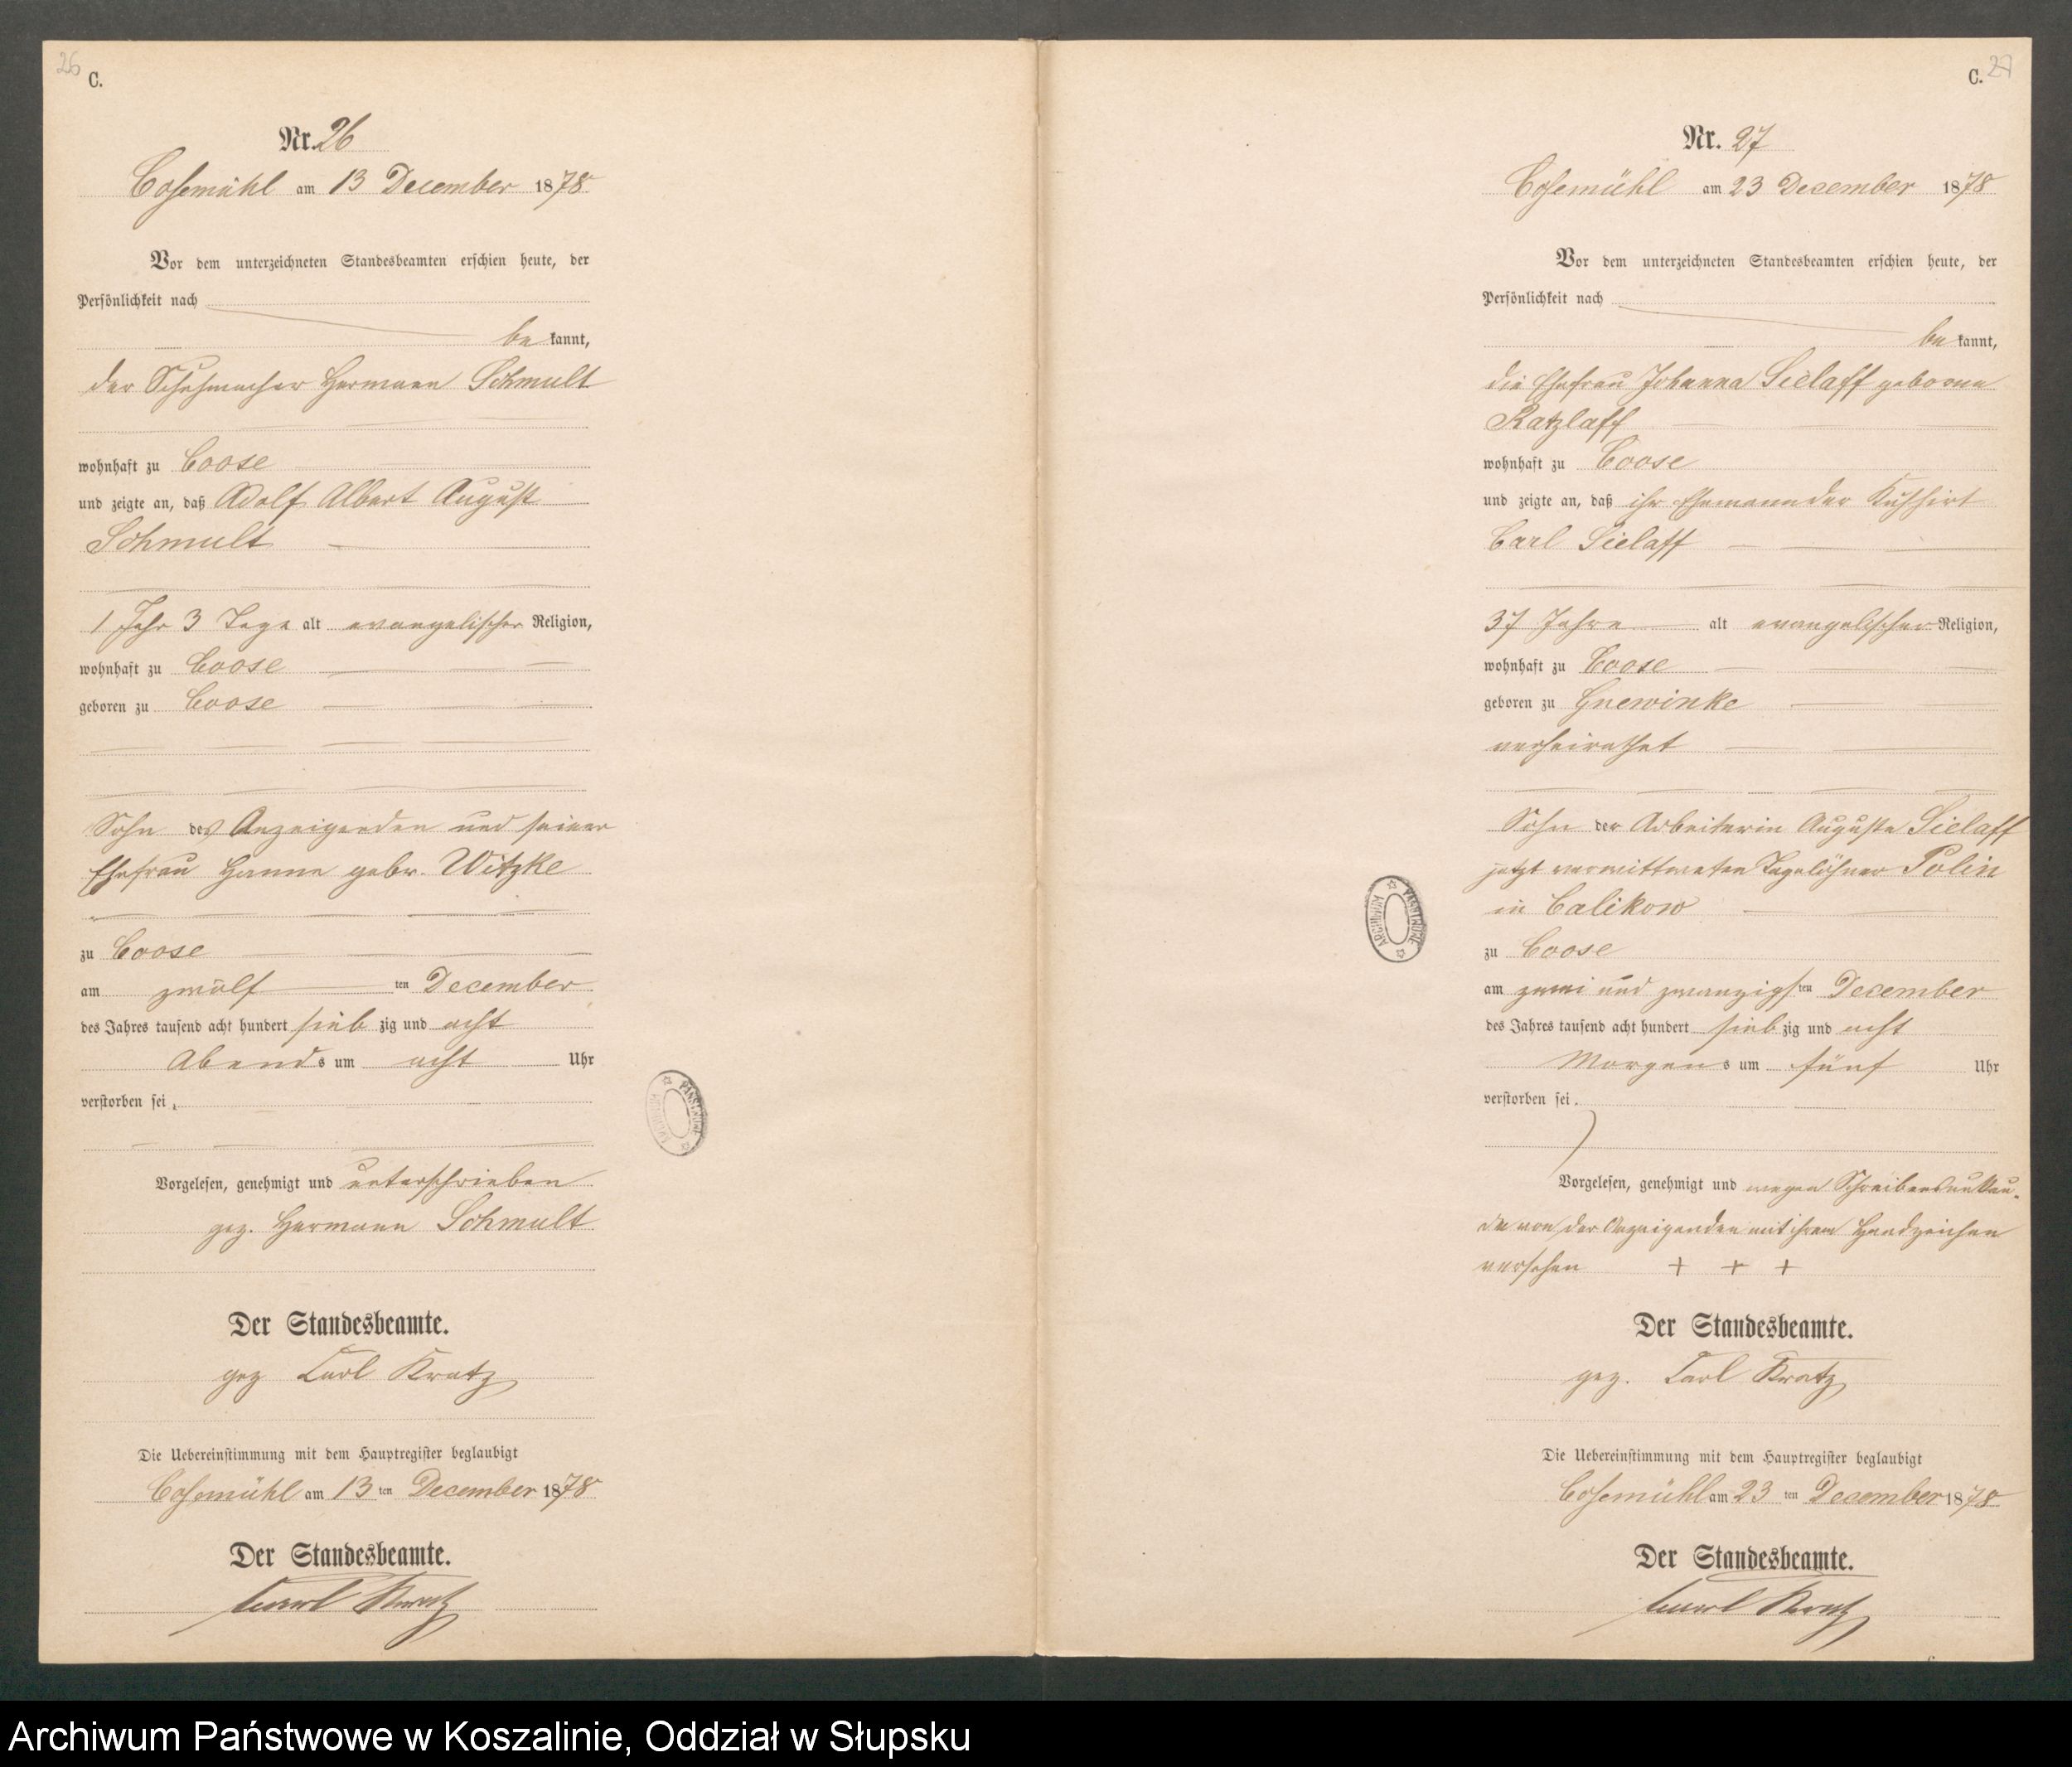 26
C.
Nr. 26
Cosemühl am 13 December 1878
Vor dem unterzeichneten Standesbeamten erschien heute, der
Persönlichkeit nach
be kannt,
der Schuhmacher Hermann Schmult
wohnhaft zu Coose
und zeigte an, daß Adolf Albert August
Schmult
1 Jahr 3 Tage alt evangelischer Religion,
wohnhaft zu Coose
geboren zu Coose
Sohn des Anzeigenden und seiner
Ehefrau Hanne gebr. Witzke
zu Coose
am zwölf ten December
des Jahres tausend acht hundert sieb zig und acht
Abends um acht Uhr
verstorben sei.
Vorgelesen, genehmigt und unterschrieben
gez. Hermann Schmult
Der Standesbeamte.
gez Carl Kratz
Die Uebereinstimmung mit dem Hauptregister beglaubigt
Cosemühl am 13 ten December 1878
Der Standesbeamte.
Carl Kratz
ARCHIWUM PAŃSTWOWE
C. 27
Nr. 27
Cosemühl am 23 December 1878
Vor dem unterzeichneten Standesbeamten erschien heute, der
Persönlichkeit nach
be kannt,
die Ehefrau Johanna Sielaff geborne
Ratzlaff
wohnhaft zu Coose
und zeigte an, daß ihr Ehemann der Kuhhirt
Carl Sielaff
37 Jahre alt evangelischer Religion,
wohnhaft zu Coose
geboren zu Gnewinke
verheirathet
Sohn der Arbeiterin Auguste Sielaff
jetzt verwittweten Tagelöhner Polin
in Calikow
zu Coose
am zwei und zwanzigsten December
des Jahres tausend acht hundert sieb zig und acht
Morgens um fünf Uhr
verstorben sei.
Vorgelesen, genehmigt und wegen Schreibensunkun-
de von der Anzeigenden mit ihrem Handzeichen
versehen + + +
Der Standesbeamte.
gez. Carl Kratz
Die Uebereinstimmung mit dem Hauptregister beglaubigt
Cosemühl am 23 ten December 1878
Der Standesbeamte.
Carl Kratz
ARCHIWUM PAŃSTWOWE
Archiwum Państwowe w Koszalinie, Oddział w Słupsku